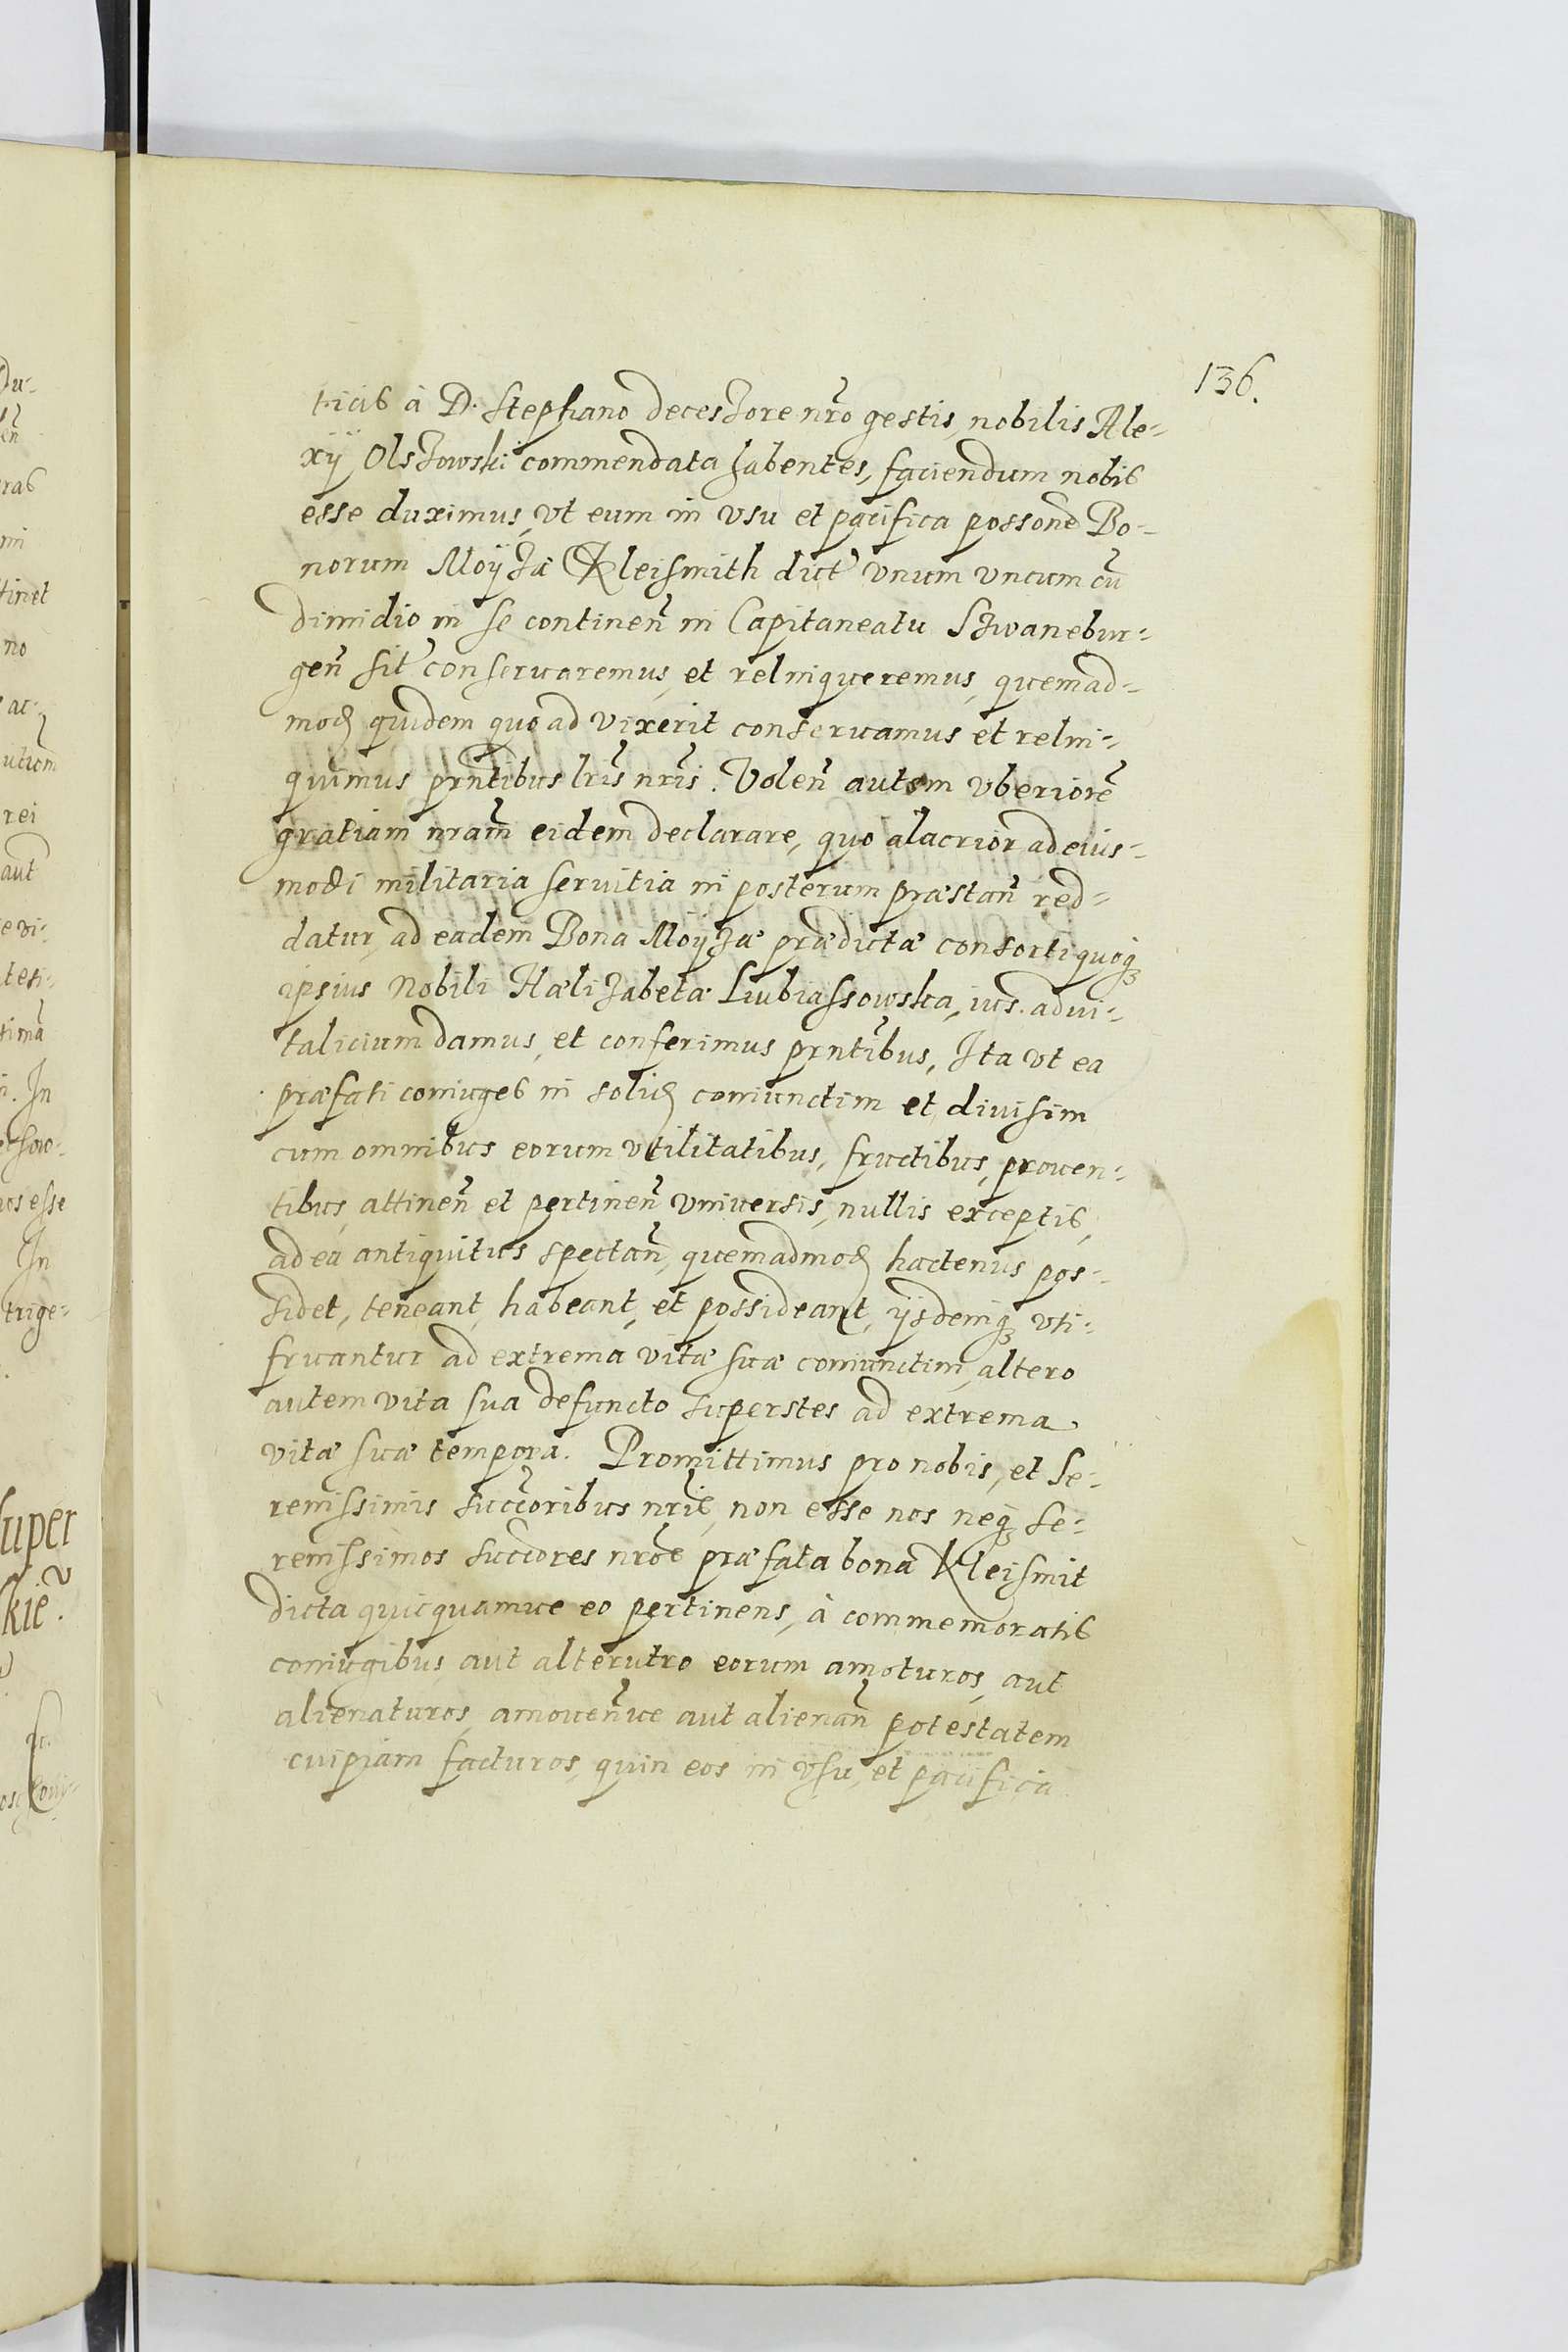 136.
ticis à D. Stephano decessore nr̃o gestis, nobilis Ale-
xÿ Olszowski commendata habentes, faciendum nobis
esse duximus, vt eum in vsu et pacifica possone Bo-
norum Moÿzæ Kleismith dict vnum vncum cũ
dimidio in se continen̄ in Capitaneatu Szwanebur-
gen̄ sit conseruaremus, et relinqueremus, quemad-
mod quidem quoad vixerit conseruamus et relin-
quimus prñtibus lris̃ nris̃. Volen̄ autem vberiorẽ
gratiam nram̃ eidem declarare, quo alacrior ad eius-
modi militaria seruitia in posterum præstan̄ red-
datur, ad eadem Bona Moÿzæ prædictæ consorti quoq
ipsius Nobili Hælizabetæ Lubiassowska, ius adui-
talicium damus, et conferimus prntibus̃, Ita vt ea
præfati coniuges in solid coniunctim et diuisim
cum omnibus eorum vtilitatibus, fructibus, prouen-
tibus, attinen̄ et pertinen̄ vniuersis, nullis exceptis,
ad ea antiquitus spectan̄, quemadmod hactenus pos-
sidet, teneant, habeant, et possideant, ÿsdemq vti-
fruantur ad extrema vitæ suæ coniunctim, altero
autem vita sua defuncto superstes ad extrema
vitæ suæ tempora. Promittimus pro nobis, et Se-
renissimis succoribus̃ nris̃, non esse nos neq se-
renissimos succores̃ nros̃ præfata bona Kleismit
dicta quicquamue eo pertinens, à commemoratis
coniugibus, aut alterutro eorum amoturos, aut
alienaturos, amouen̄ue aut alienan̄ potestatem
cuipiam facturos, quin eos in vsu, et pacifica